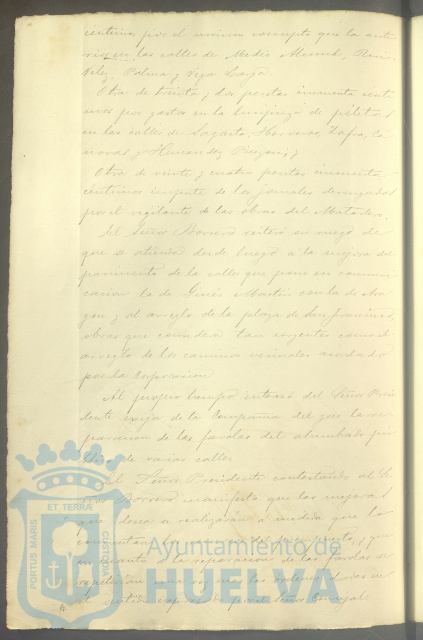 céntimos por el mismo concepto que la ante
rior en las calles de Medio Almud, Rui
Velez, Palma y Vega Larga.
Otra de treinta y dos pesetas cincuenta cénti
mos por gastos en la limpieza de piletas
en las calles de Sagasta, Herreros, Zafra, Cá
novas y Hernández Pinzón; y
Otra de veinte y cuatro pesetas cincuenta
céntimos importe de los jornales devengados
por el vigilante de las obras del Matadero.
El Señor Borrero reiteró su ruego de
que se atienda desde luego a la mejora del
pavimento de la calle que pone en comuni
cación la de Ginés Martín con la de Ara
gon y al arreglo de la plaza de San Francisco,
obras que considera tan urgentes como el
arreglo de los caminos vecinales acordado
por la Corporación.
Al propio tiempo interesó del Señor Presi
dente exija de la Compañía del gas la re
paración de las farolas del alumbrado pú
blico de varias calles.
El Señor Presidente contestando al Se
ñor Borrero manifestó que las mejoras
que desea se realizarán a medida que lo
en cuanto a la reparación de las farolas se
el sentido expresado por el Señor Concejal.
PORTUS MARIS ET TERRÆ CUSTODIA
Ayuntamiento de
HUELVA